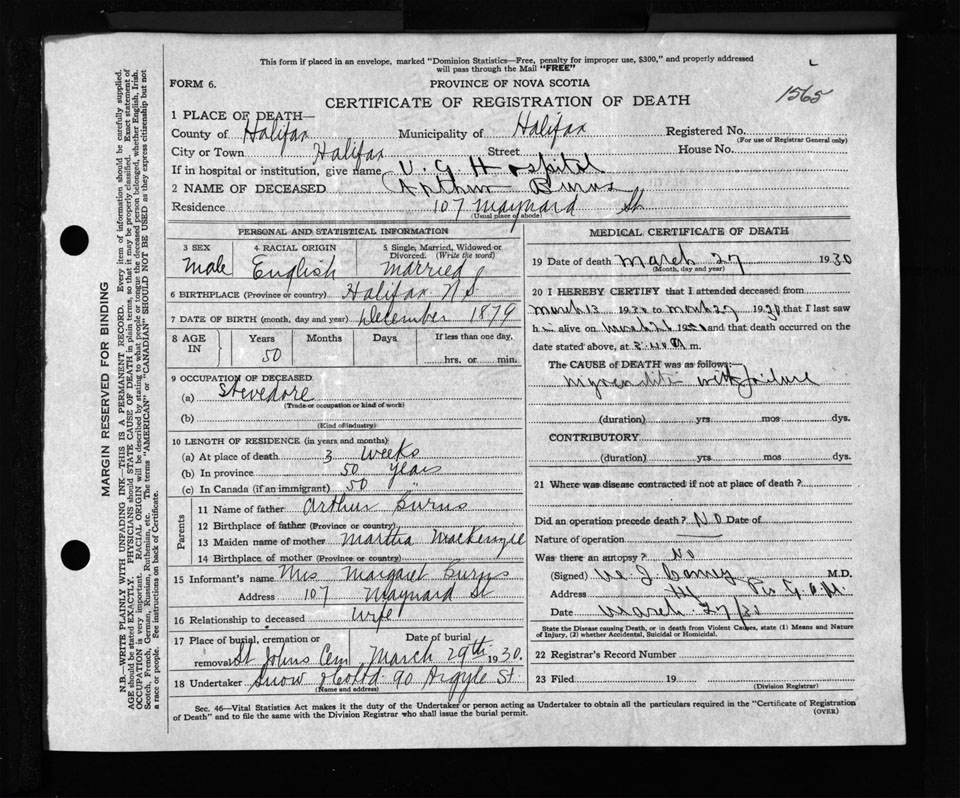 This form if placed in an envelope, marked "Dominion Statistics—Free, penalty for improper use, $300," and properly addressed
will pass through the Mail "FREE"
FORM 6.
PROVINCE OF NOVA SCOTIA
CERTIFICATE OF REGISTRATION OF DEATH
1565
1 PLACE OF DEATH—
County of Halifax Municipality of Halifax Registered No.
(For use of Registrar General only)
City or Town Halifax Street House No.
If in hospital or institution, give name V. G Hospital
2 NAME OF DECEASED Arthur Burns
Residence 107 Maynard St
(Usual place of abode)
PERSONAL AND STATISTICAL INFORMATION
3 SEX
Male
4 RACIAL ORIGIN
English
5 Single, Married, Widowed or
Divorced. (Write the word)
Married
6 BIRTHPLACE (Province or country) Halifax N.S.
7 DATE OF BIRTH (month, day and year) December 1879
8 AGE IN
Years
50
Months
Days
If less than one day,
hrs. or min.
9 OCCUPATION OF DECEASED
(a) Stevedore
(Trade or occupation or kind of work)
(b)
(Kind of industry)
10 LENGTH OF RESIDENCE (in years and months)
(a) At place of death 3 weeks
(b) In province 50 years
(c) In Canada (if an immigrant) 50 "
Parents
11 Name of father Arthur Burns
12 Birthplace of father (Province or country)
13 Maiden name of mother Martha MacKenzie
14 Birthplace of mother (Province or country)
15 Informant's name Mrs Margaret Burns
Address 107 Maynard St
16 Relationship to deceased Wife
17 Place of burial, cremation or
removal St Johns Cem
Date of burial
March 29th 1930.
18 Undertaker Snow & Co Ltd. 90 Argyle St.
(Name and address)
MEDICAL CERTIFICATE OF DEATH
19 Date of death March 27 1930
(Month, day and year)
20 I HEREBY CERTIFY that I attended deceased from
March 13 1930 to March 27 1930 that I last saw
h alive on and that death occurred on the
date stated above, at m.
The CAUSE of DEATH was as follows:
Myocarditis with failure
(duration) yrs mos dys.
CONTRIBUTORY
(duration) yrs mos dys.
21 Where was disease contracted if not at place of death?
Did an operation precede death? No Date of
Nature of operation
Was there an autopsy? No
(Signed) M.D.
Address
Date March 27/30
State the Disease causing Death, or in death from Violent Causes, state (1) Means and Nature
of Injury, (2) whether Accidental, Suicidal or Homicidal.
22 Registrar's Record Number
23 Filed 19
(Division Registrar)
Sec. 46—Vital Statistics Act makes it the duty of the Undertaker or person acting as Undertaker to obtain all the particulars required in the "Certificate of Registration
of Death" and to file the same with the Division Registrar who shall issue the burial permit.
(OVER)
MARGIN RESERVED FOR BINDING
N.B.—WRITE PLAINLY WITH UNFADING INK—THIS IS A PERMANENT RECORD. Every item of information should be carefully supplied.
AGE should be stated EXACTLY. PHYSICIANS should STATE CAUSE OF DEATH in plain terms, so that it may be properly classified. Exact statement of
OCCUPATION is very important. RACIAL ORIGIN will be described by stating to what people or tongue the deceased person belonged, whether English, Irish,
Scotch, French, German, Russian, Ruthenian, etc. The terms "AMERICAN" or "CANADIAN" SHOULD NOT BE USED as they express citizenship but not
a race or people. See instructions on back of Certificate.